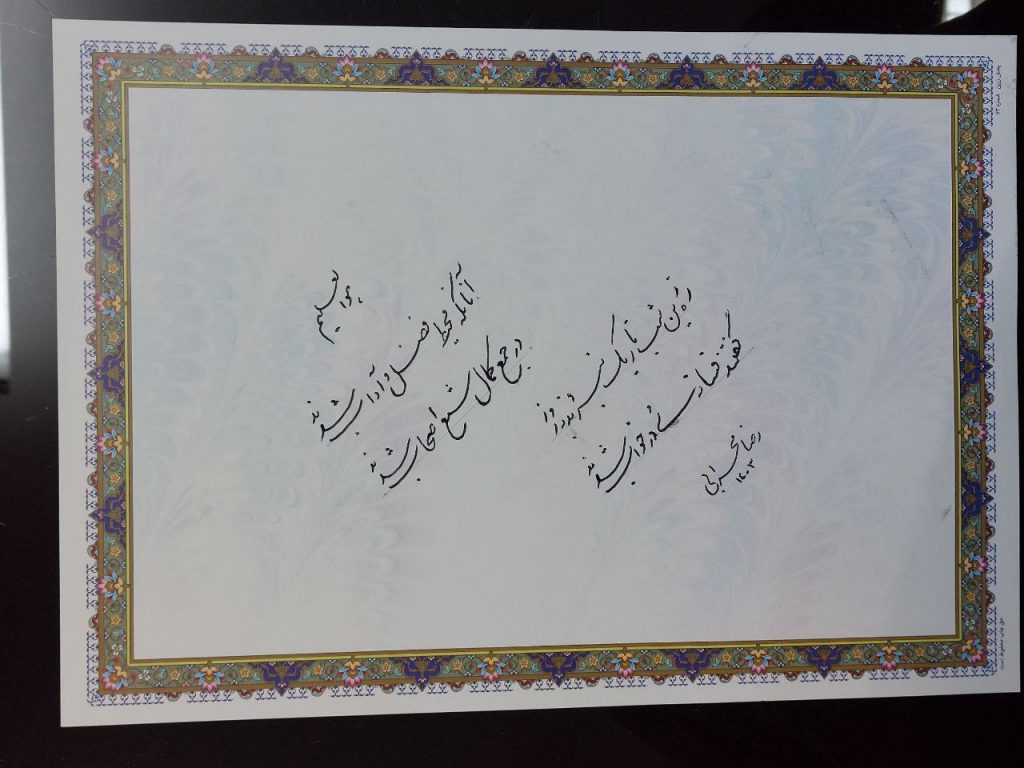 هوالعلیم
آنانکه محیط فضل و آداب شدند
در جمع کمال شمع اصحاب شدند
ره زین شب تاریک نبردند بروز
گفتند فسانه‌ای و در خواب شدند
رضا
۱۴۰۳
حق چاپ محفوظ است